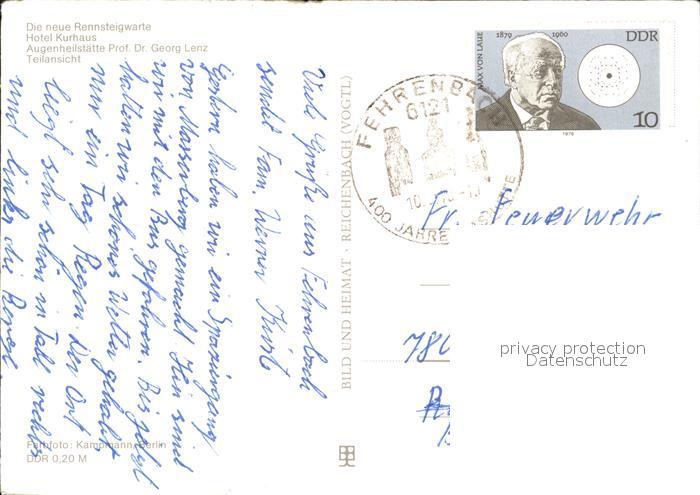 Die neue Rennsteigwarte
Hotel Kurhaus
Augenheilstätte Prof. Dr. Georg Lenz
Teilansicht
Viele Grüße aus Fehrenbach
sendet Fam. Werner Kurt
Gestern haben wir ein Spaziergang
von Masserberg gemacht. Hin sind
wir mit den Bus gefahren. Bis jetzt
hatten wir schönes Wetter gehabt
nur ein Tag Regen. Der Ort
liegt sehr schön in Tall rechts
und links die Berge
Farbfoto: Kampmann, Berlin
DDR 0,20 M
BILD UND HEIMAT · REICHENBACH (VOGTL)
MAX VON LAUE
1879 1960
DDR
10
1979
FEHRENBACH
6121
400 JAHRE
Fr. Feuerwehr
780
privacy protection
Datenschutz